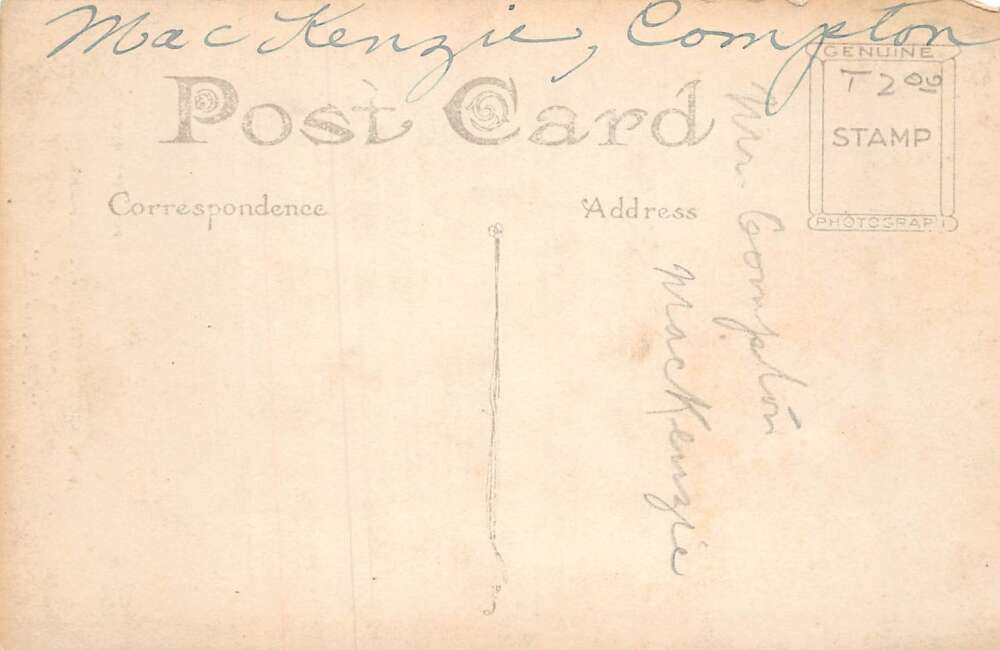 MacKenzie, Compton
Post Card
GENUINE
T 2 00
STAMP
PHOTOGRAPH
Correspondence
Address
Mr. Compton
MacKenzie